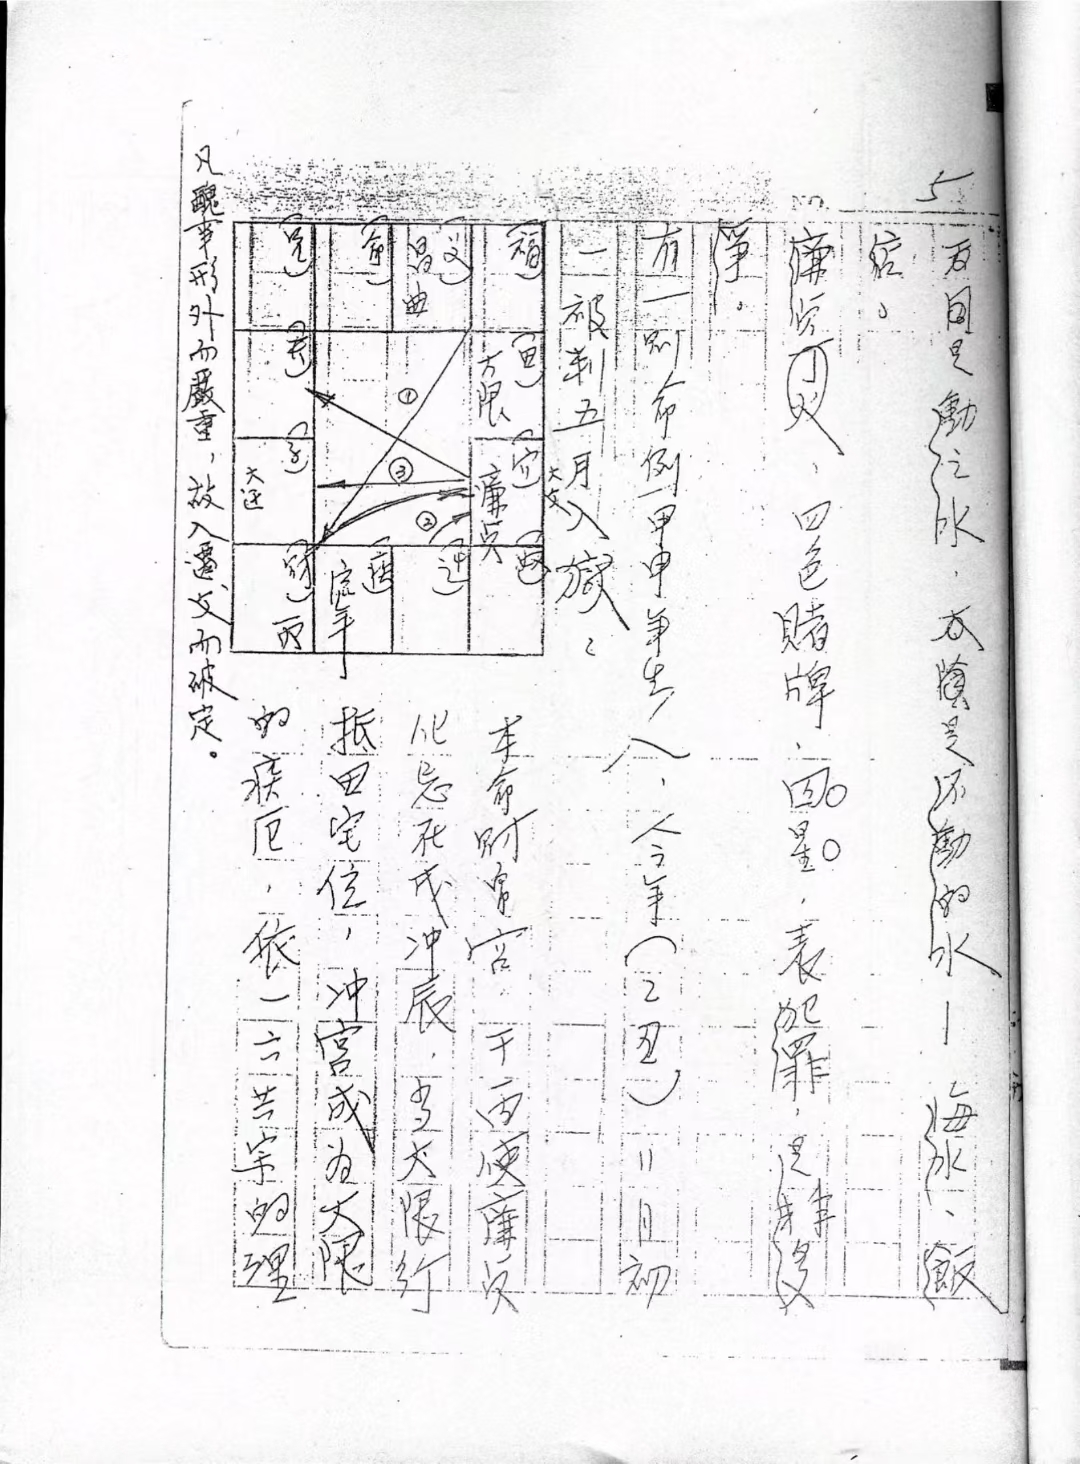 5
天同是動之水，太陰是不動的水—海水、飯
店。
廉貞、四色賭牌、囚星。表犯罪，是
淨。
有一別命例—甲申年生人，今年(乙丑)11月初
一被判五月入獄：
本命財帛宮干丙使廉貞
化忌在戌冲辰，当大限行
抵田宅位，冲宮成为大限
的疾厄，依一六共宗的理
凡醜事形外而嚴重，故入遷父而破定。
兄
命
父
昌曲
福
夫
田
大限
子
大迁
官
廉貞
大父
財
丙
疾
流年
迁
①
②
③